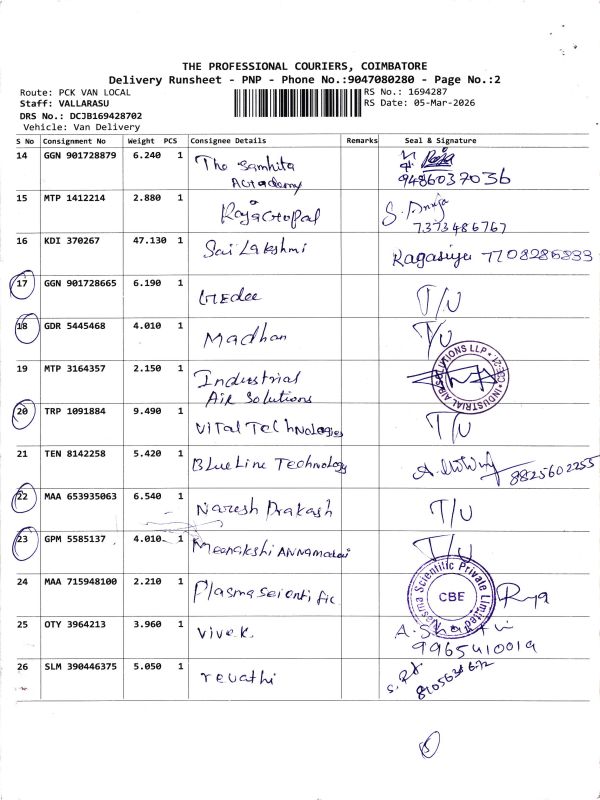 THE PROFESSIONAL COURIERS, COIMBATORE
Delivery Runsheet - PNP - Phone No.:9047080280 - Page No.:2
Route: PCK VAN LOCAL
RS No.: 1694287
Staff: VALLARASU
RS Date: 05-Mar-2026
DRS No.: DCJB169428702
Vehicle: Van Delivery
S No Consignment No Weight PCS Consignee Details Remarks Seal & Signature
14 GGN 901728879 6.240 1 The Samhita Raja
Acradomy 9486037036
15 MTP 1412214 2.880 1 Rajagopal S.
7373486767
16 KDI 370267 47.130 1 Sai Lakshmi
17 GGN 901728665 6.190 1 T/U
18 GDR 5445468 4.010 1 Madhan T/U
19 MTP 3164357 2.150 1 Industrial
Air Solutions
20 TRP 1091884 9.490 1 Vital Technologies T/U
21 TEN 8142258 5.420 1 Blueline Technology 8825602255
22 MAA 653935063 6.540 1 Naresh Prakash T/U
23 GPM 5585137 4.010 1 Meenakshi Annamalai T/U
24 MAA 715948100 2.210 1 Plasma Scientific CBE
25 OTY 3964213 3.960 1 Vivek.
9965410019
26 SLM 390446375 5.050 1 revathi
5